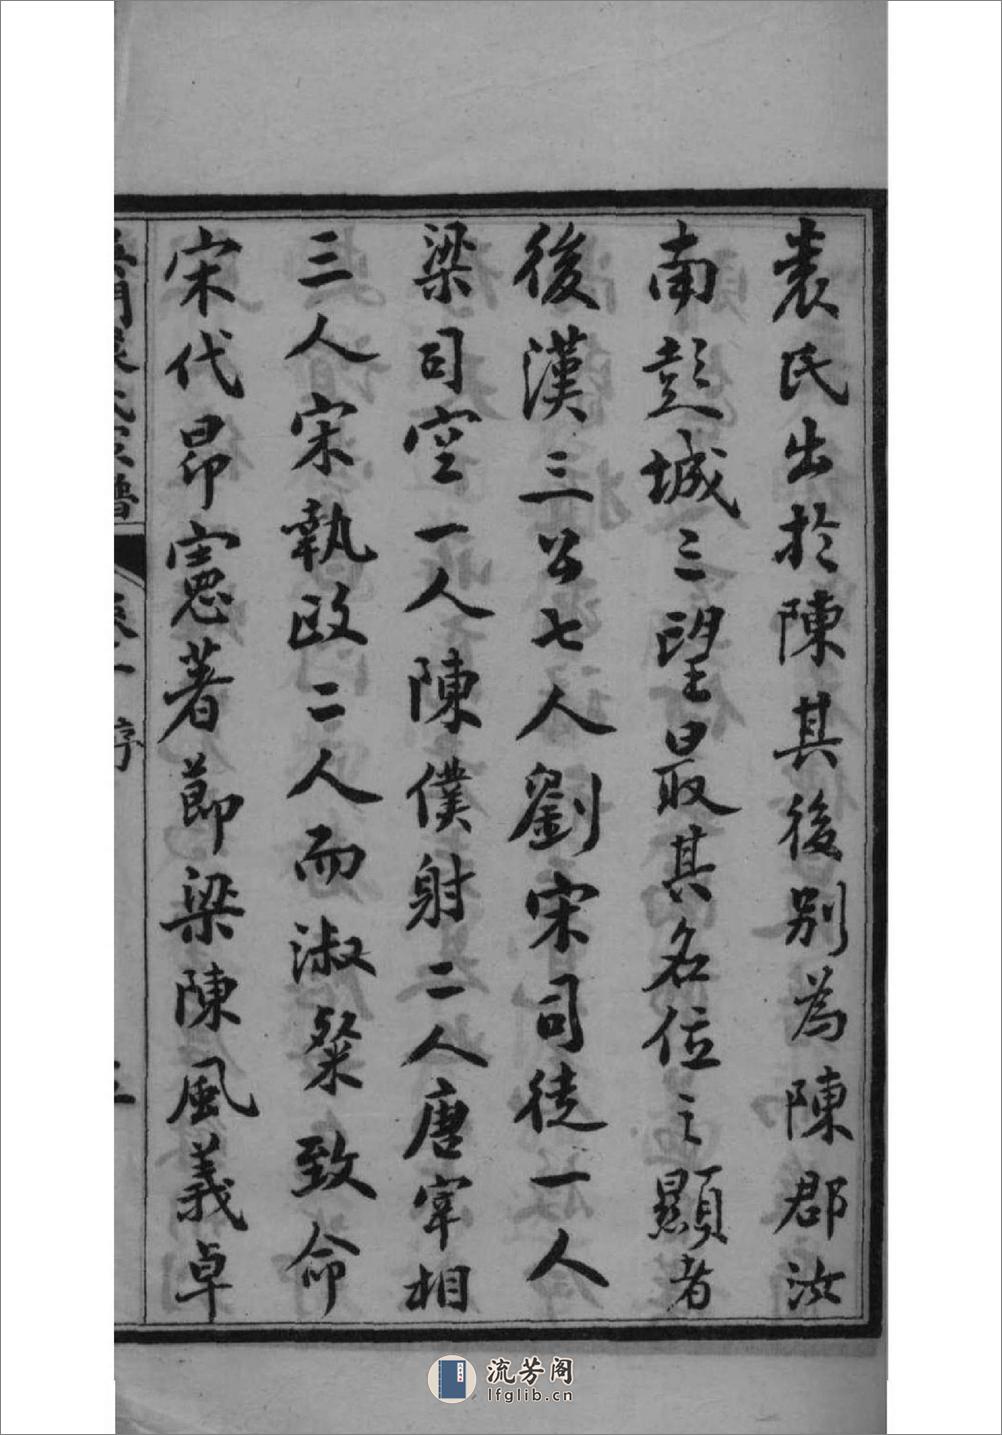 袁氏出於陳其後別為陳郡汝
南彭城三望最其名位之顯者
後漢三公七人劉宋司徒一人
梁司空一人陳僕射二人唐宰相
三人宋執政二人而淑粲致命
宋代昂憲著節梁陳風義卓
吳門袁氏家譜 卷一 序
流芳阁
lfglib.cn